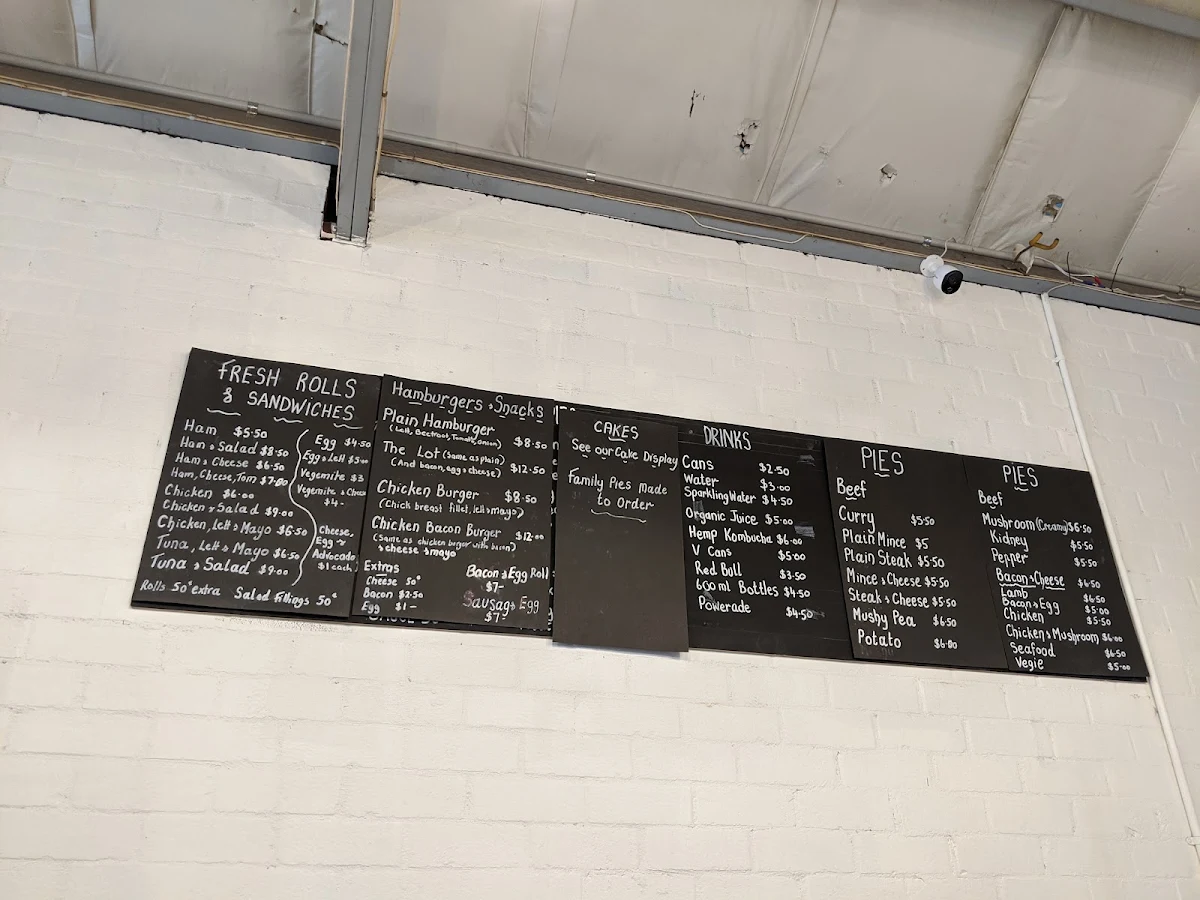 FRESH ROLLS
& SANDWICHES
Ham $5.50
Ham & Salad $8.50
Ham & Cheese $6.50
Ham, Cheese, Tom $7.00
Chicken $6.00
Chicken & Salad $9.00
Chicken, Lett & Mayo $6.50
Tuna, Lett & Mayo $6.50
Tuna & Salad $9.00
Egg $4.50
Egg & Lett $5.00
Vegemite $3
Vegemite & Cheese
$4-
Cheese,
Egg or
Advocado
$1 each
Rolls 50¢ extra Salad Fillings 50¢
Hamburgers & Snacks
Plain Hamburger
(Lett, Beetroot, Tomato, Onion) $8.50
The Lot (Same as plain)
(And bacon, egg & cheese) $12.50
Chicken Burger $8.50
(Chick breast fillet, lett & mayo)
Chicken Bacon Burger $12.00
(Same as chicken burger with bacon)
& cheese & mayo
Extras
Cheese 50¢
Bacon $2.50
Egg $1-
Bacon & Egg Roll
$7-
Sausage Egg
$7-
CAKES
See our Cake Display
Family Pies Made
to Order
DRINKS
Cans $2.50
Water $3.00
Sparkling Water $4.50
Organic Juice $5.00
Hemp Kombucha $6.00
V Cans $5.00
Red Bull $3.50
600ml Bottles $4.50
Powerade $4.50
PIES
Beef
Curry $5.50
Plain Mince $5
Plain Steak $5.50
Mince & Cheese $5.50
Steak & Cheese $5.50
Mushy Pea $6.50
Potato $6.00
PIES
Beef
Mushroom (Creamy) $6.50
Kidney $5.50
Pepper $5.50
Bacon & Cheese $6.50
Lamb $6.50
Bacon & Egg $5.00
Chicken $5.50
Chicken & Mushroom $6.00
Seafood $6.50
Vegie $5.00